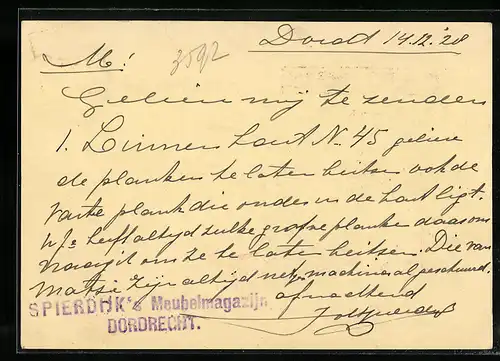 Dordt 14.12.'28
M.'
3592
Gelieve mij te zenden
1. Linnenkast No. 45 gelieve
de planken te laten beitsen ook de
vaste plank die onder in de kast ligt.
heeft altijd zulke grove planken daarom
te laten beitsen. Die van
zijn altijd net machinaal geschuurd.
afwachtend
SPIERDIJK's Meubelmagazijn
DORDRECHT.